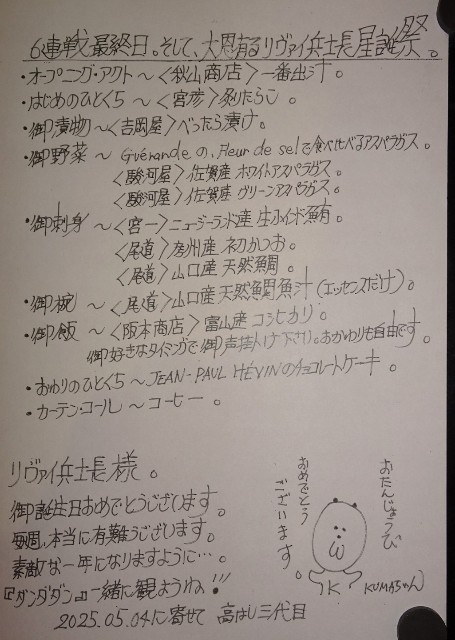 6連戦最終日。そして、大恩有るリヴァイ兵士長星誕祭。
・オープニング・アクト～〈秋山商店〉一番出汁。
・はじめのひとくち～〈宮彦〉炙りたらこ。
・御漬物～〈吉岡屋〉べったら漬け。
・御野菜～Guérandeの、Fleur de selで食べ比べるアスパラガス。
〈駿河屋〉佐賀産ホワイトアスパラガス。
〈駿河屋〉佐賀産グリーンアスパラガス。
・御刺身～〈宮一〉ニュージーランド産生インド鮪。
〈尾道〉房州産初かつお。
〈尾道〉山口産天然鯛。
・御椀～〈尾道〉山口産天然鯛魚汁(エッセンスだけ)。
・御飯～〈阪本商店〉富山産コシヒカリ。
御好きなタイミングで御声掛け下さい。おかわりも自由です。
・おわりのひとくち～JEAN-PAUL HÉVINのチョコレートケーキ。
・カーテン・コール～コーヒー。
リヴァイ兵士長様。
御誕生日おめでとうございます。
毎週、本当に有難うございます。
素敵な一年になりますように…。
『ダンダダン』一緒に観ようね!!!
2025.05.04に寄せて 高はし三代目
おたんじょうび
おめでとう
ございます。
K
KUMAちゃん